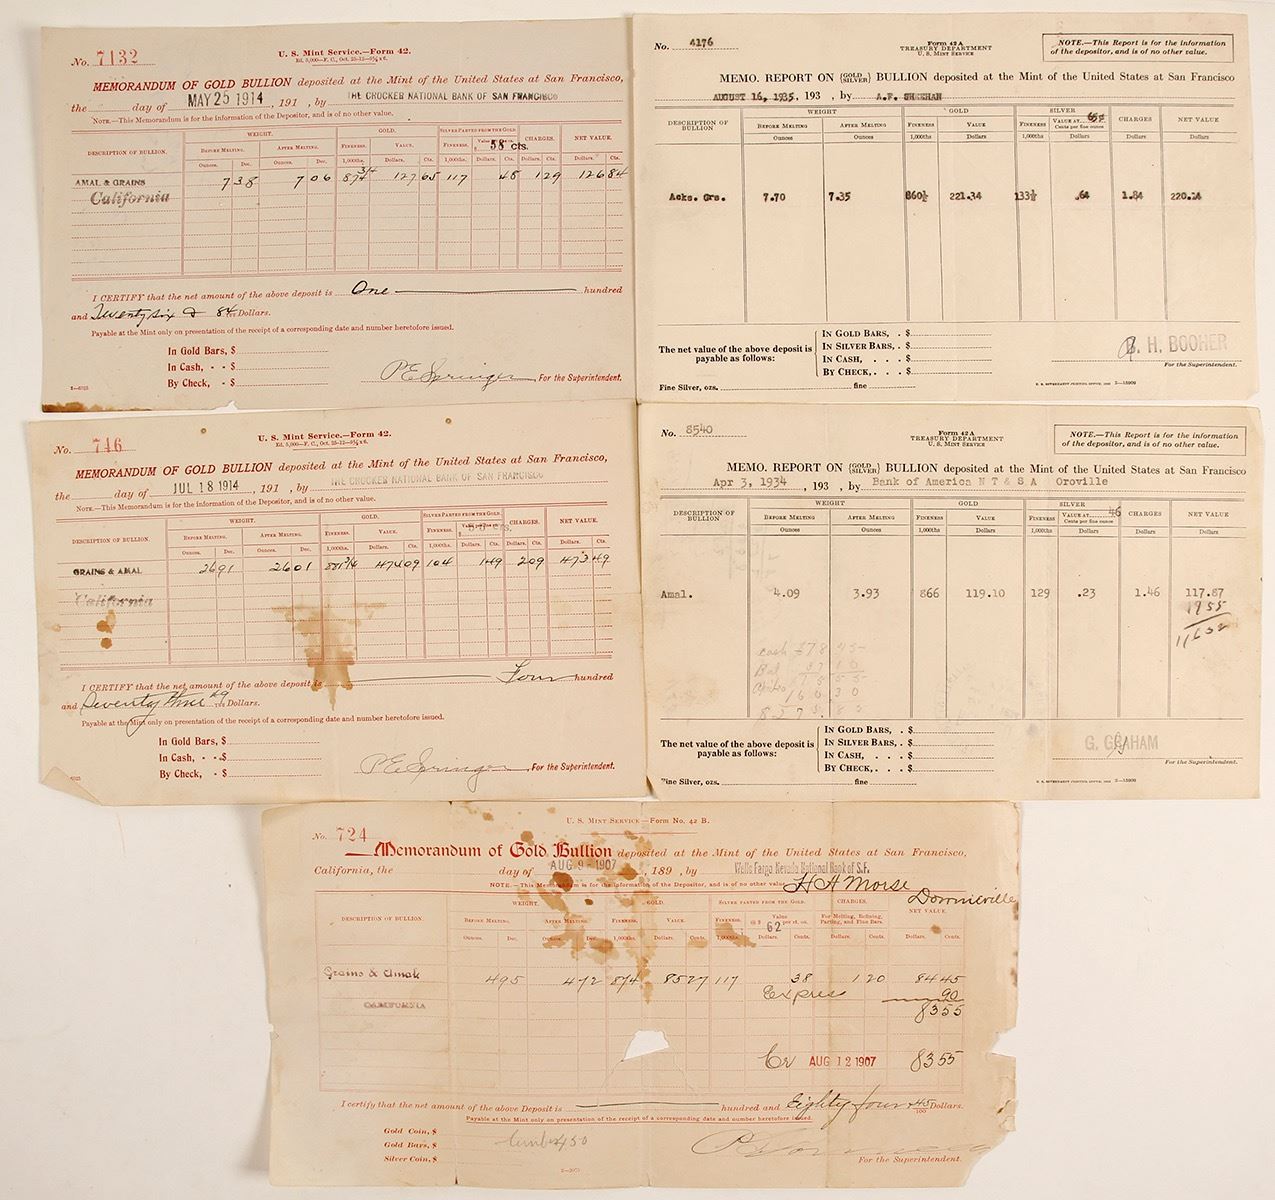 No. 7132
U. S. Mint Service.—Form 42.
MEMORANDUM OF GOLD BULLION deposited at the Mint of the United States at San Francisco,
the day of MAY 25 1914, 191 , by THE CROCKER NATIONAL BANK OF SAN FRANCISCO
NOTE.—This Memorandum is for the information of the Depositor, and is of no other value.
WEIGHT. GOLD. SILVER PARTED FROM THE GOLD. CHARGES. NET VALUE.
DESCRIPTION OF BULLION. BEFORE MELTING. AFTER MELTING. FINENESS. VALUE. FINENESS. 58 cts.
Ounces. Dec. Ounces. Dec. 1,000ths. Dollars. Cts. 1,000ths. Dollars. Cts. Dollars. Cts. Dollars. Cts.
AMAL & GRAINS 7 38 7 06 874 3/4 127 65 117 48 1 29 126 84
California
I CERTIFY that the net amount of the above deposit is One hundred
and Twenty six & 84/100 Dollars.
Payable at the Mint only on presentation of the receipt of a corresponding date and number heretofore issued.
In Gold Bars, $
In Cash, - - $
By Check, - $
P E Springer For the Superintendent.
No. 4176
Form 42 A
TREASURY DEPARTMENT
U. S. MINT SERVICE
NOTE.—This Report is for the information
of the depositor, and is of no other value.
MEMO. REPORT ON (GOLD SILVER) BULLION deposited at the Mint of the United States at San Francisco
AUGUST 16, 1935, 193 , by A.F. SHEEHAN
WEIGHT GOLD SILVER
DESCRIPTION OF BULLION BEFORE MELTING AFTER MELTING FINENESS VALUE FINENESS VALUE AT 65¢ Cents per fine ounce CHARGES NET VALUE
Ounces Ounces 1,000ths Dollars 1,000ths Dollars Dollars Dollars
Acks. Grs. 7.70 7.35 860½ 221.34 133½ .64 1.84 220.14
The net value of the above deposit is
payable as follows:
IN GOLD BARS, . $
IN SILVER BARS, . $
IN CASH, . . . $
BY CHECK, . . . $
H. BOOHER
For the Superintendent.
Fine Silver, ozs. fine
No. 746
U. S. Mint Service.—Form 42.
MEMORANDUM OF GOLD BULLION deposited at the Mint of the United States at San Francisco,
the day of JUL 18 1914, 191 , by THE CROCKER NATIONAL BANK OF SAN FRANCISCO
NOTE.—This Memorandum is for the information of the Depositor, and is of no other value.
WEIGHT. GOLD. SILVER PARTED FROM THE GOLD. CHARGES. NET VALUE.
DESCRIPTION OF BULLION. BEFORE MELTING. AFTER MELTING. FINENESS. VALUE. FINENESS.
Ounces. Dec. Ounces. Dec. 1,000ths. Dollars. Cts. 1,000ths. Dollars. Cts. Dollars. Cts. Dollars. Cts.
GRAINS & AMAL 26 91 26 01 881 3/4 474 09 104 1 49 2 09 473 49
California
I CERTIFY that the net amount of the above deposit is Four hundred
and Seventy three 49/100 Dollars.
Payable at the Mint only on presentation of the receipt of a corresponding date and number heretofore issued.
In Gold Bars, $
In Cash, - - $
By Check, - $
P E Springer For the Superintendent.
No. 8540
Form 42 A
TREASURY DEPARTMENT
U. S. MINT SERVICE
NOTE.—This Report is for the information
of the depositor, and is of no other value.
MEMO. REPORT ON (GOLD SILVER) BULLION deposited at the Mint of the United States at San Francisco
Apr 3, 1934, 193 , by Bank of America N T & S A Oroville
WEIGHT GOLD SILVER
DESCRIPTION OF BULLION BEFORE MELTING AFTER MELTING FINENESS VALUE FINENESS VALUE AT 46 Cents per fine ounce CHARGES NET VALUE
Ounces Ounces 1,000ths Dollars 1,000ths Dollars Dollars Dollars
Amal. 4.09 3.93 866 119.10 129 .23 1.46 117.87
The net value of the above deposit is
payable as follows:
IN GOLD BARS, . $
IN SILVER BARS, . $
IN CASH, . . . $
BY CHECK, . . . $
G. GRAHAM
For the Superintendent.
Fine Silver, ozs. fine
No. 724
U. S. MINT SERVICE—FORM NO. 42 B.
Memorandum of Gold Bullion deposited at the Mint of the United States at San Francisco,
California, the day of AUG 9-1907, 189 , by Wells Fargo Nevada National Bank of S.F.
NOTE.—This Memorandum is for the information of the Depositor, and is of no other value. H A Morse
Downieville
WEIGHT. GOLD. SILVER PARTED FROM THE GOLD. CHARGES. NET VALUE.
DESCRIPTION OF BULLION. BEFORE MELTING. AFTER MELTING. FINENESS. VALUE. FINENESS. Value 62 For Melting, Refining, Parting, and Fine Bars.
Ounces. Dec. Ounces. Dec. 1,000ths. Dollars. Cents. 1,000ths. Dollars. Cents. Dollars. Cents. Dollars. Cents.
Grains & Amal. 4 95 4 72 874 85 27 117 38 1 20 84 45
Express 90
CALIFORNIA 83 55
Cr AUG 12 1907 83 55
I certify that the net amount of the above Deposit is hundred and Eighty four 45/100 Dollars.
Payable at the Mint only on presentation of the receipt of a corresponding date and number heretofore issued.
Gold Coin, $
Gold Bars, $
Silver Coin, $
For the Superintendent.